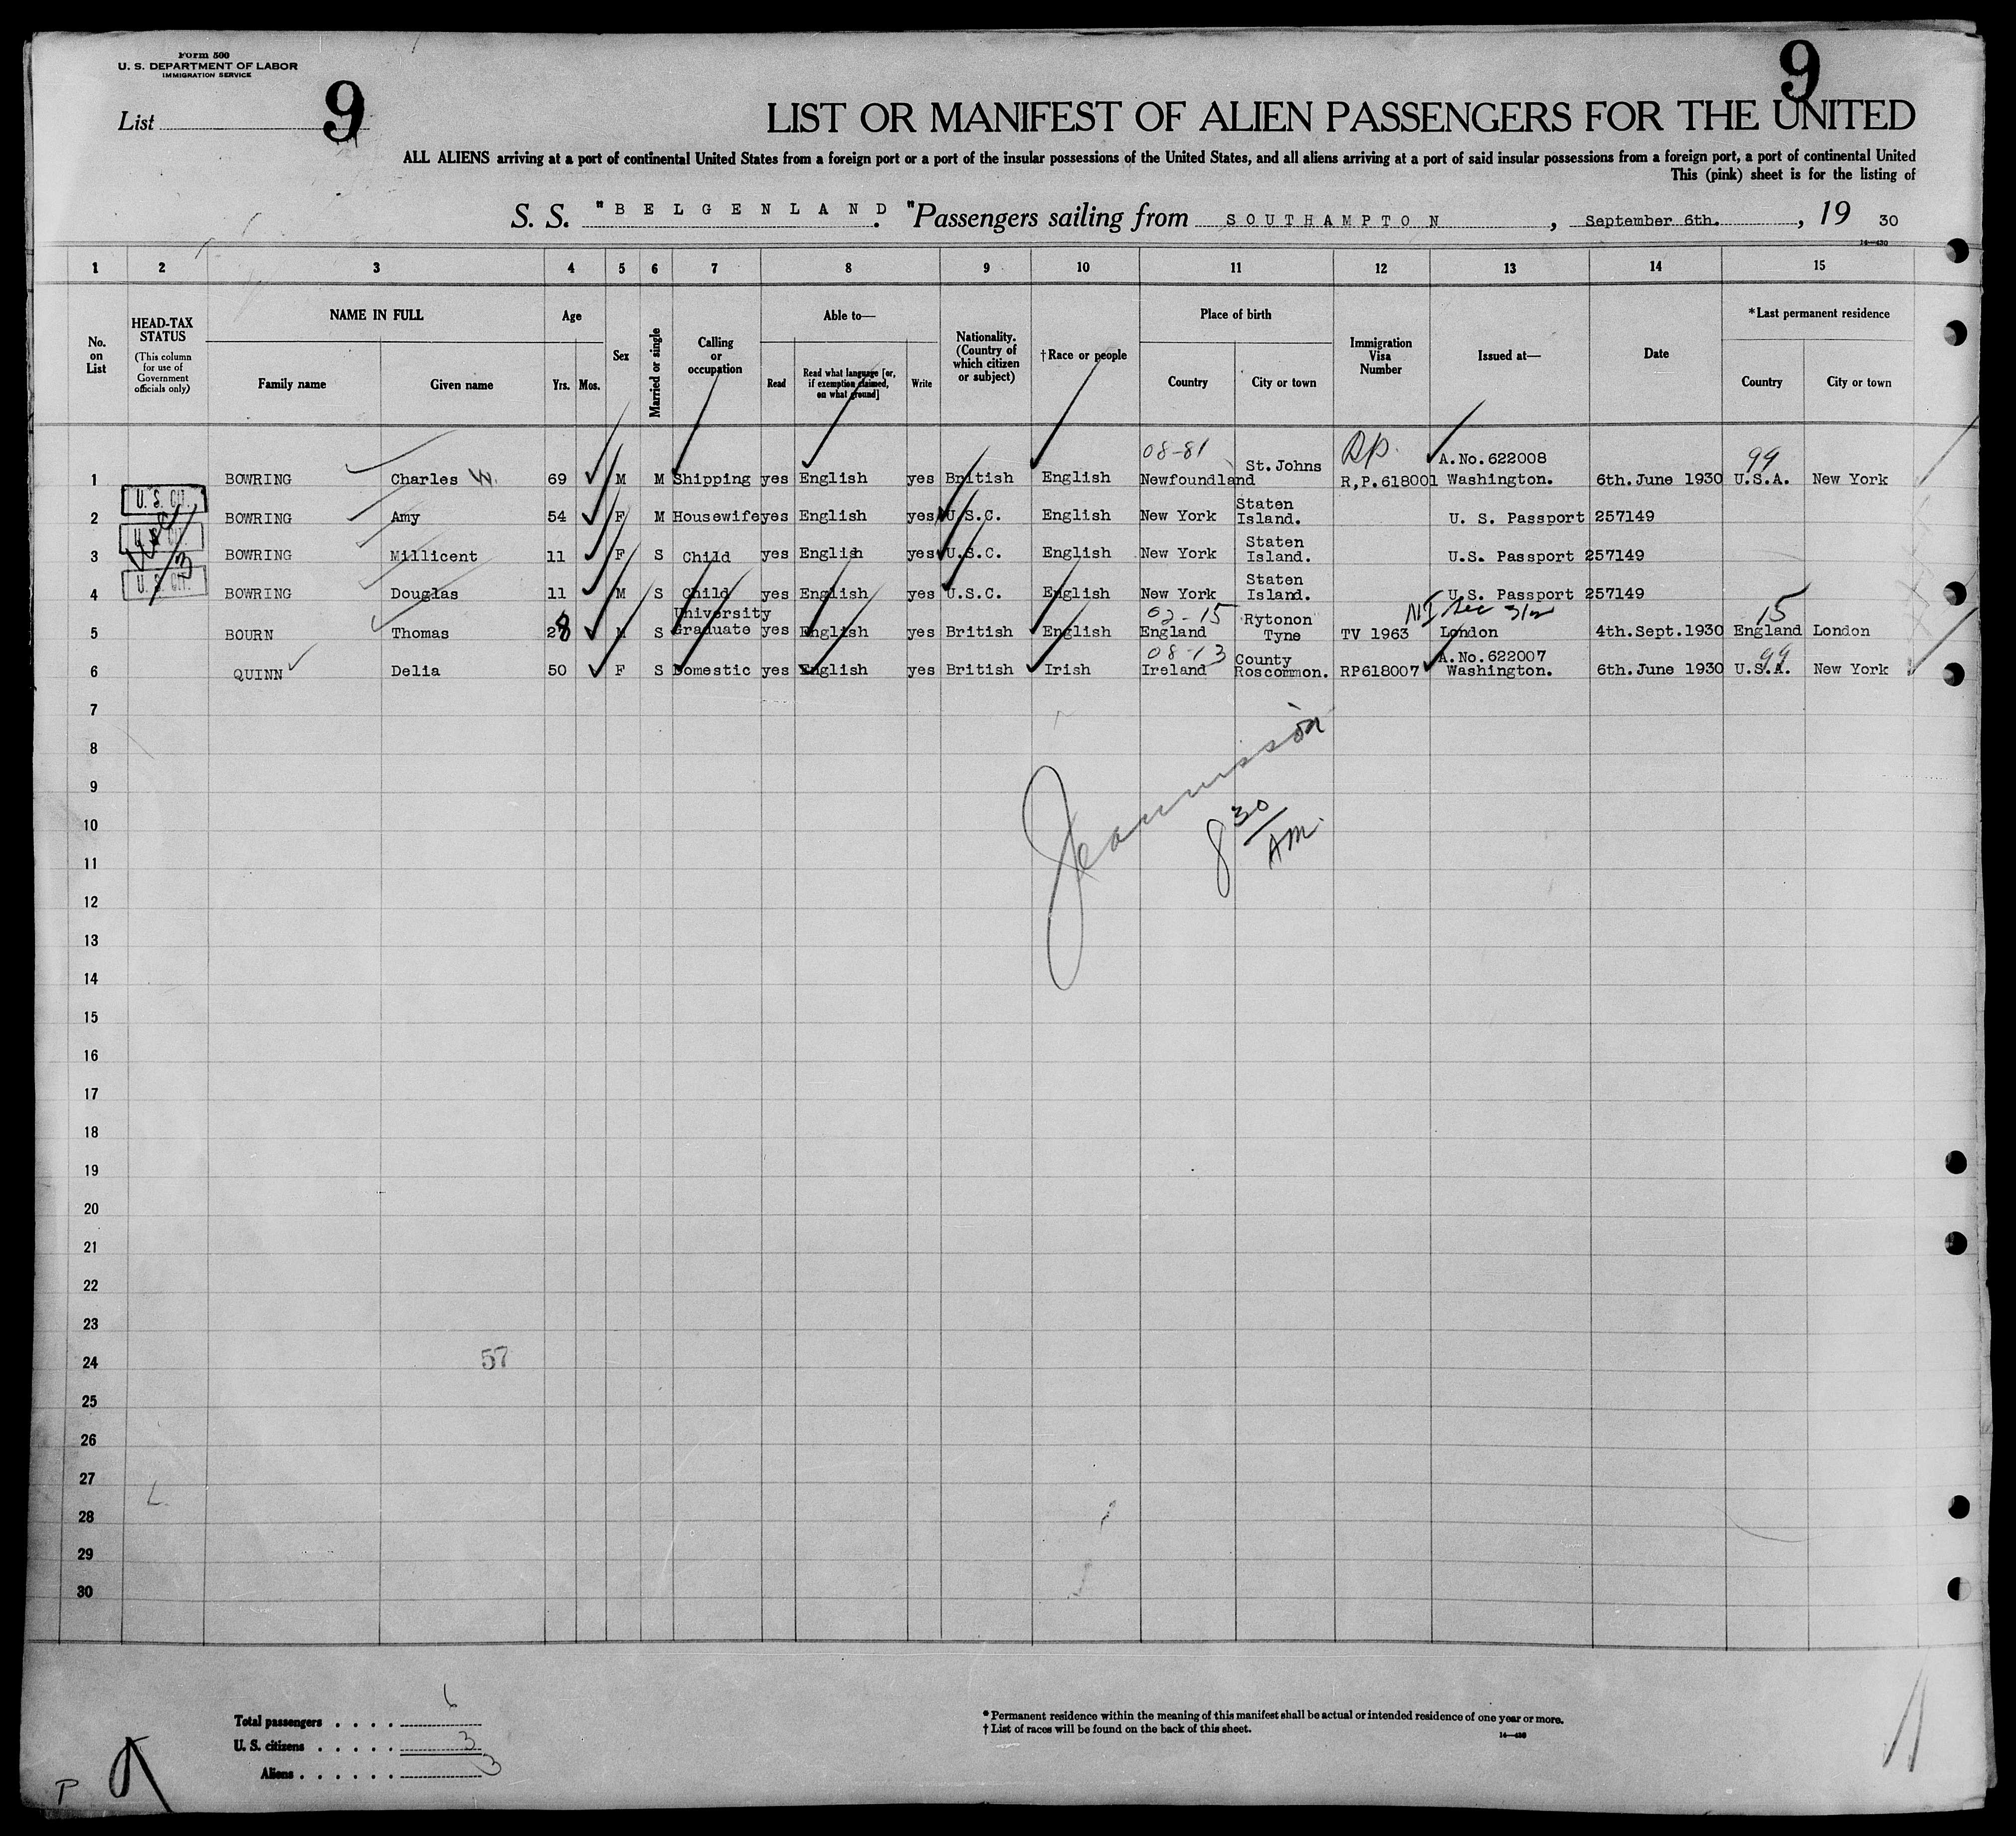 Form 500
U. S. DEPARTMENT OF LABOR
IMMIGRATION SERVICE
List 9
9
LIST OR MANIFEST OF ALIEN PASSENGERS FOR THE UNITED
ALL ALIENS arriving at a port of continental United States from a foreign port or a port of the insular possessions of the United States, and all aliens arriving at a port of said insular possessions from a foreign port, a port of continental United
This (pink) sheet is for the listing of
S. S. "BELGENLAND". Passengers sailing from SOUTHAMPTON, September 6th., 19 30
14—430
1 2 3 4 5 6 7 8 9 10 11 12 13 14 15
No. on List
HEAD-TAX STATUS
(This column for use of Government officials only)
NAME IN FULL
Family name Given name
Age
Yrs. Mos.
Sex
Married or single
Calling or occupation
Able to—
Read
Read what language [or, if exemption claimed, on what ground]
Write
Nationality. (Country of which citizen or subject)
†Race or people
Place of birth
Country City or town
Immigration Visa Number
Issued at—
Date
*Last permanent residence
Country City or town
08-81 RP. A.No.622008 99
1 BOWRING Charles W. 69 M M Shipping yes English yes British English Newfoundland St.Johns R,P.618001 Washington. 6th.June 1930 U.S.A. New York
U. S. CIT.
2 BOWRING Amy 54 F M Housewife yes English yes U.S.C. English New York Staten Island. U. S. Passport 257149
U. S. CIT.
3 BOWRING Millicent 11 F S Child yes English yes U.S.C. English New York Staten Island. U.S. Passport 257149
U. S. CIT.
4 BOWRING Douglas 11 M S Child yes English yes U.S.C. English New York Staten Island. U.S. Passport 257149
02-15 NI Sec 3/2 15
5 BOURN Thomas 28 M S University Graduate yes English yes British English England Rytonon Tyne TV 1963 London 4th.Sept.1930 England London
08-13 A.No.622007 99
6 QUINN Delia 50 F S Domestic yes English yes British Irish Ireland County Roscommon. RP618007 Washington. 6th.June 1930 U.S.A. New York
7
8
9
10
8 30 AM.
11
12
13
14
15
16
17
18
19
20
21
22
23
24 57
25
26
27
28
29
30
Total passengers . . . . 6
U. S. citizens . . . . . 3
Aliens . . . . . . 3
* Permanent residence within the meaning of this manifest shall be actual or intended residence of one year or more.
† List of races will be found on the back of this sheet.
14—430
P